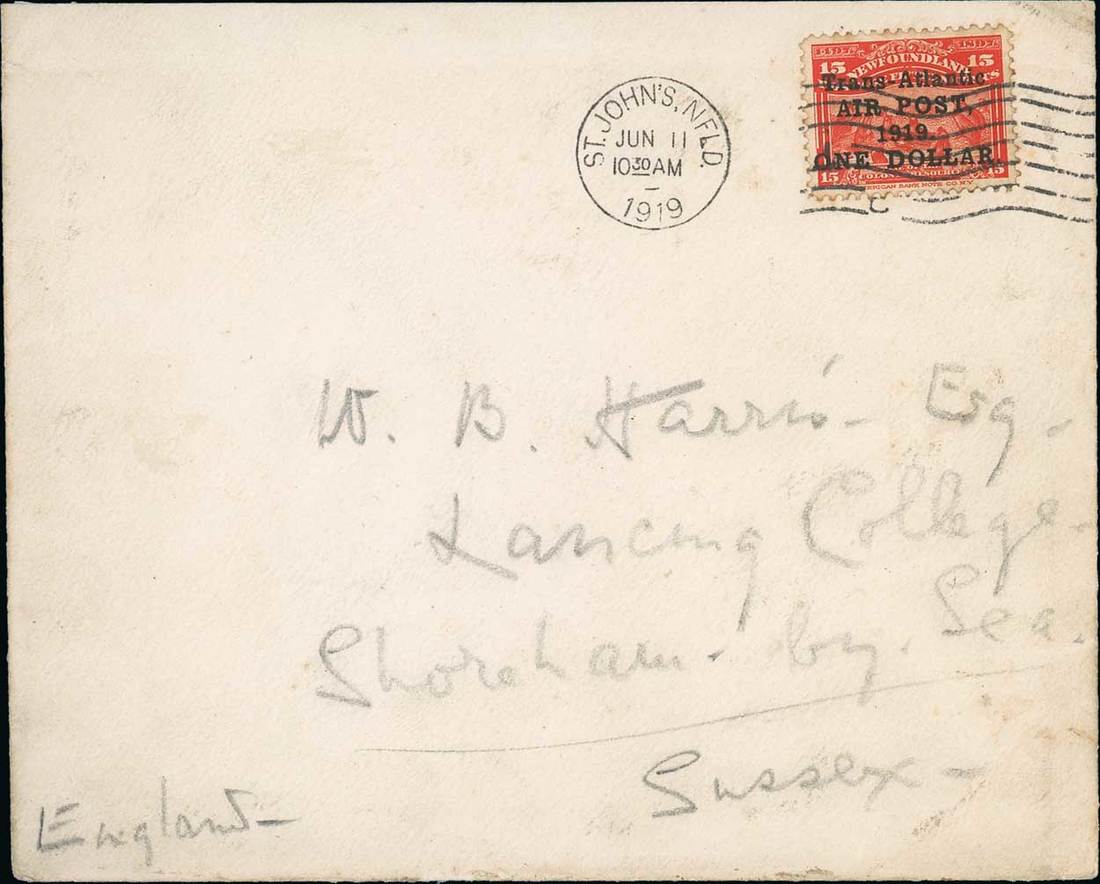 ST. JOHN'S, NFLD.
JUN 11
10 30 AM
1919
1897 1897
15 NEWFOUNDLAND 15
Trans-Atlantic
AIR POST,
1919.
ONE DOLLAR.
15 15
W. B. Harris - Esq -
Lancing College -
Shoreham - by - Sea.
Sussex -
England -